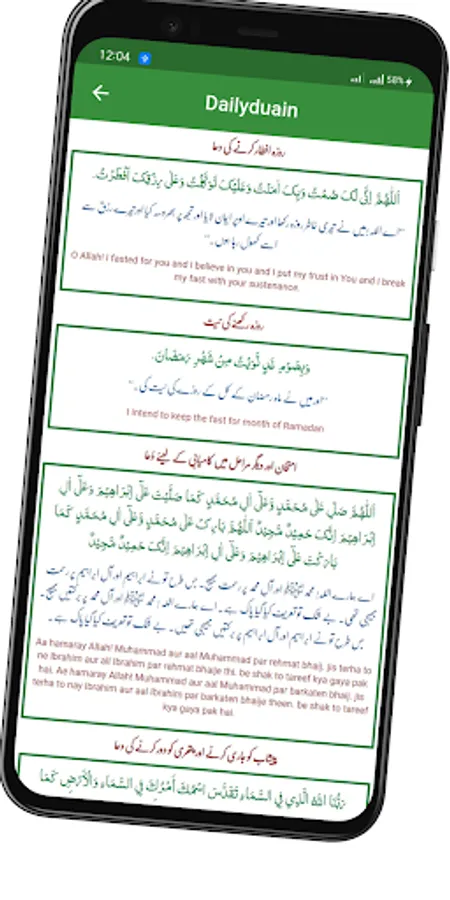 12:04
58%
Dailyduain
روزہ افطار کرنے کی دعا
اَللّٰهُمَّ اِنِّی لَکَ صُمْتُ وَبِکَ اٰمَنْتُ وَعَلَيْکَ تَوَکَّلْتُ وَعَلٰی رِزْقِکَ اَفْطَرْتُ.
"اے اللہ! میں نے تیری خاطر روزہ رکھا اور تیرے اوپر ایمان لایا اور تجھ پر بھروسہ کیا اور تیرے رزق سے
اسے کھول رہا ہوں۔"
O Allah! I fasted for you and I believe in you and I put my trust in You and I break
my fast with your sustenance.
روزہ رکھنے کی نیت
وَبِصَوْمِ غَدٍ نَّوَيْتُ مِنْ شَهْرِ رَمَضَانَ.
"اور میں نے ماہ رمضان کے کل کے روزے کی نیت کی۔"
I intend to keep the fast for month of Ramadan
امتحان اور دیگر مراحل میں کامیابی کے لیئے دُعا
اَللّٰهُمَّ صَلِّ عَلٰی مُحَمَّدٍ وَّعَلٰٓی اٰلِ مُحَمَّدٍ کَمَا صَلَّيْتَ عَلٰٓی اِبْرَاهِيْمَ وَعَلٰٓی اٰلِ
اِبْرَاهِيْمَ اِنَّکَ حَمِيْدٌ مَّجِيْدٌ اَللّٰهُمَّ بَارِکْ عَلٰی مُحَمَّدٍ وَّعَلٰٓی اٰلِ مُحَمَّدٍ کَمَا
بَارَکْتَ عَلٰٓی اِبْرَاهِيْمَ وَعَلٰٓی اٰلِ اِبْرَاهِيْمَ اِنَّکَ حَمِيْدٌ مَّجِيْدٌ
اے ہمارے اللہ! محمد ﷺ اور آل محمد پر رحمت بھیج۔ جس طرح تو نے ابراہیم اور آل ابراہیم پر رحمت
بھیجی تھی۔ بے شک تو تعریف کیا گیا پاک ہے۔ اے ہمارے اللہ! محمد ﷺ اور آل محمد پر برکتیں بھیج۔
جس طرح تو نے ابراہیم اور آل ابراہیم پر برکتیں بھیجی تھیں۔ بے شک تو تعریف کیا گیا پاک ہے۔
Aa hamaray Allah! Muhammad aur aal Muhammad par rehmat bhaij. jis terha to
ne Ibrahim aur all Ibrahim par rehmat bhaije thi. be shak to tareef kya gaya pak
hai. Ae hamaray Allah! Muhammad aur aal Muhammad par barkaten bhaij. jis
terha to nay Ibrahim aur aal Ibrahim par barkaten bhaije theen. be shak to tareef
kya gaya pak hai.
پیشاب کو جاری کرنے اور پتھری کو دور کرنے کی دعا
رَبُّنَا اللهُ الَّذِي فِي السَّمَاءِ تَقَدَّسَ اسْمُكَ أَمْرُكَ فِي السَّمَاءِ وَالْأَرْضِ كَمَا